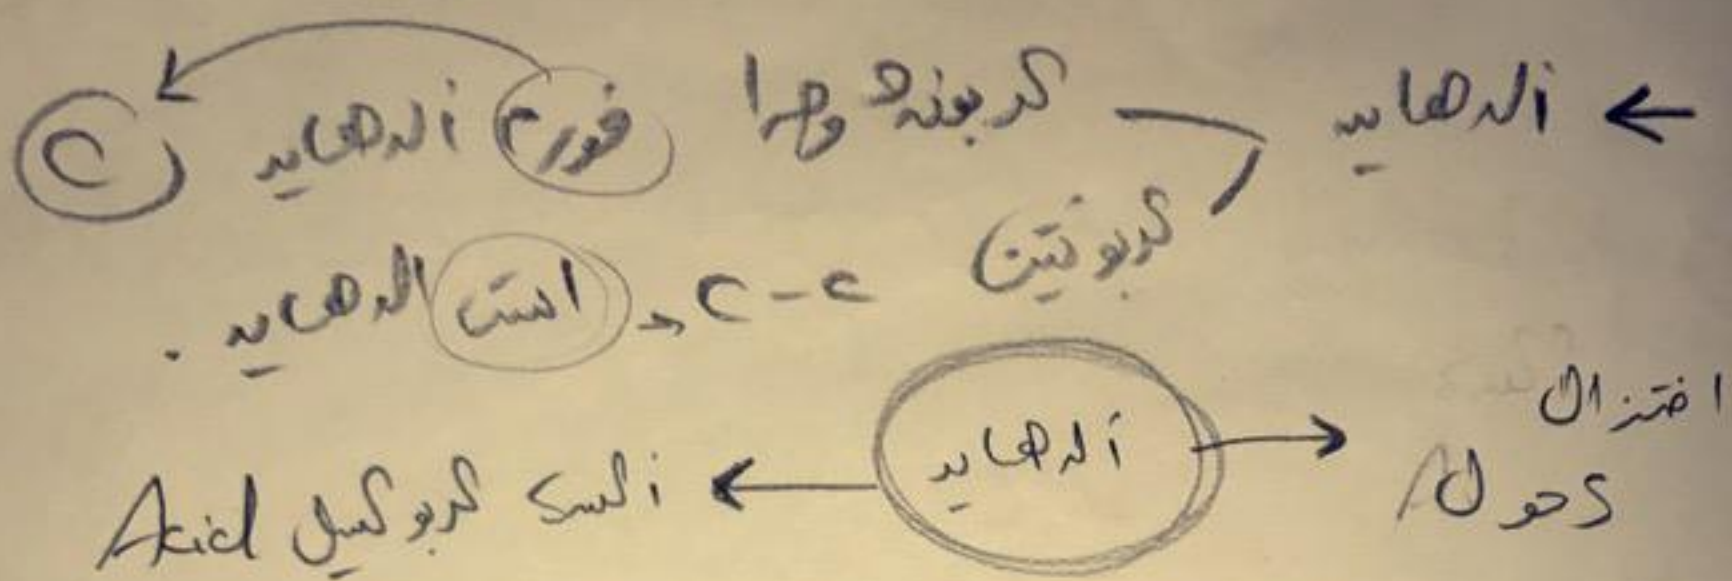 ← ألدهايد — كربونة وحدا فورم ألدهايد C
كربونتين C-C → است الدهايد .
اختزال ← ألدهايد → أكسد كربوكسيل Acid
كحول